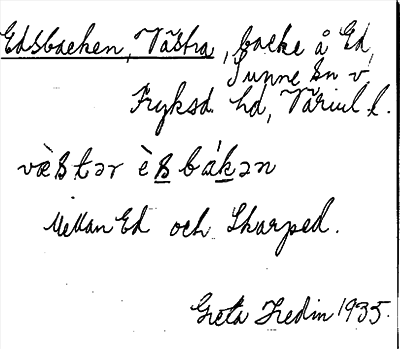 Edsbacken, Västra, backe å Ed,
Sunne sn v.
Fryksd. hd, Värml l.
væ̀stər è s̲ bák̲ən
Mellan Ed och Skarped.
Greta Hedin 1935.